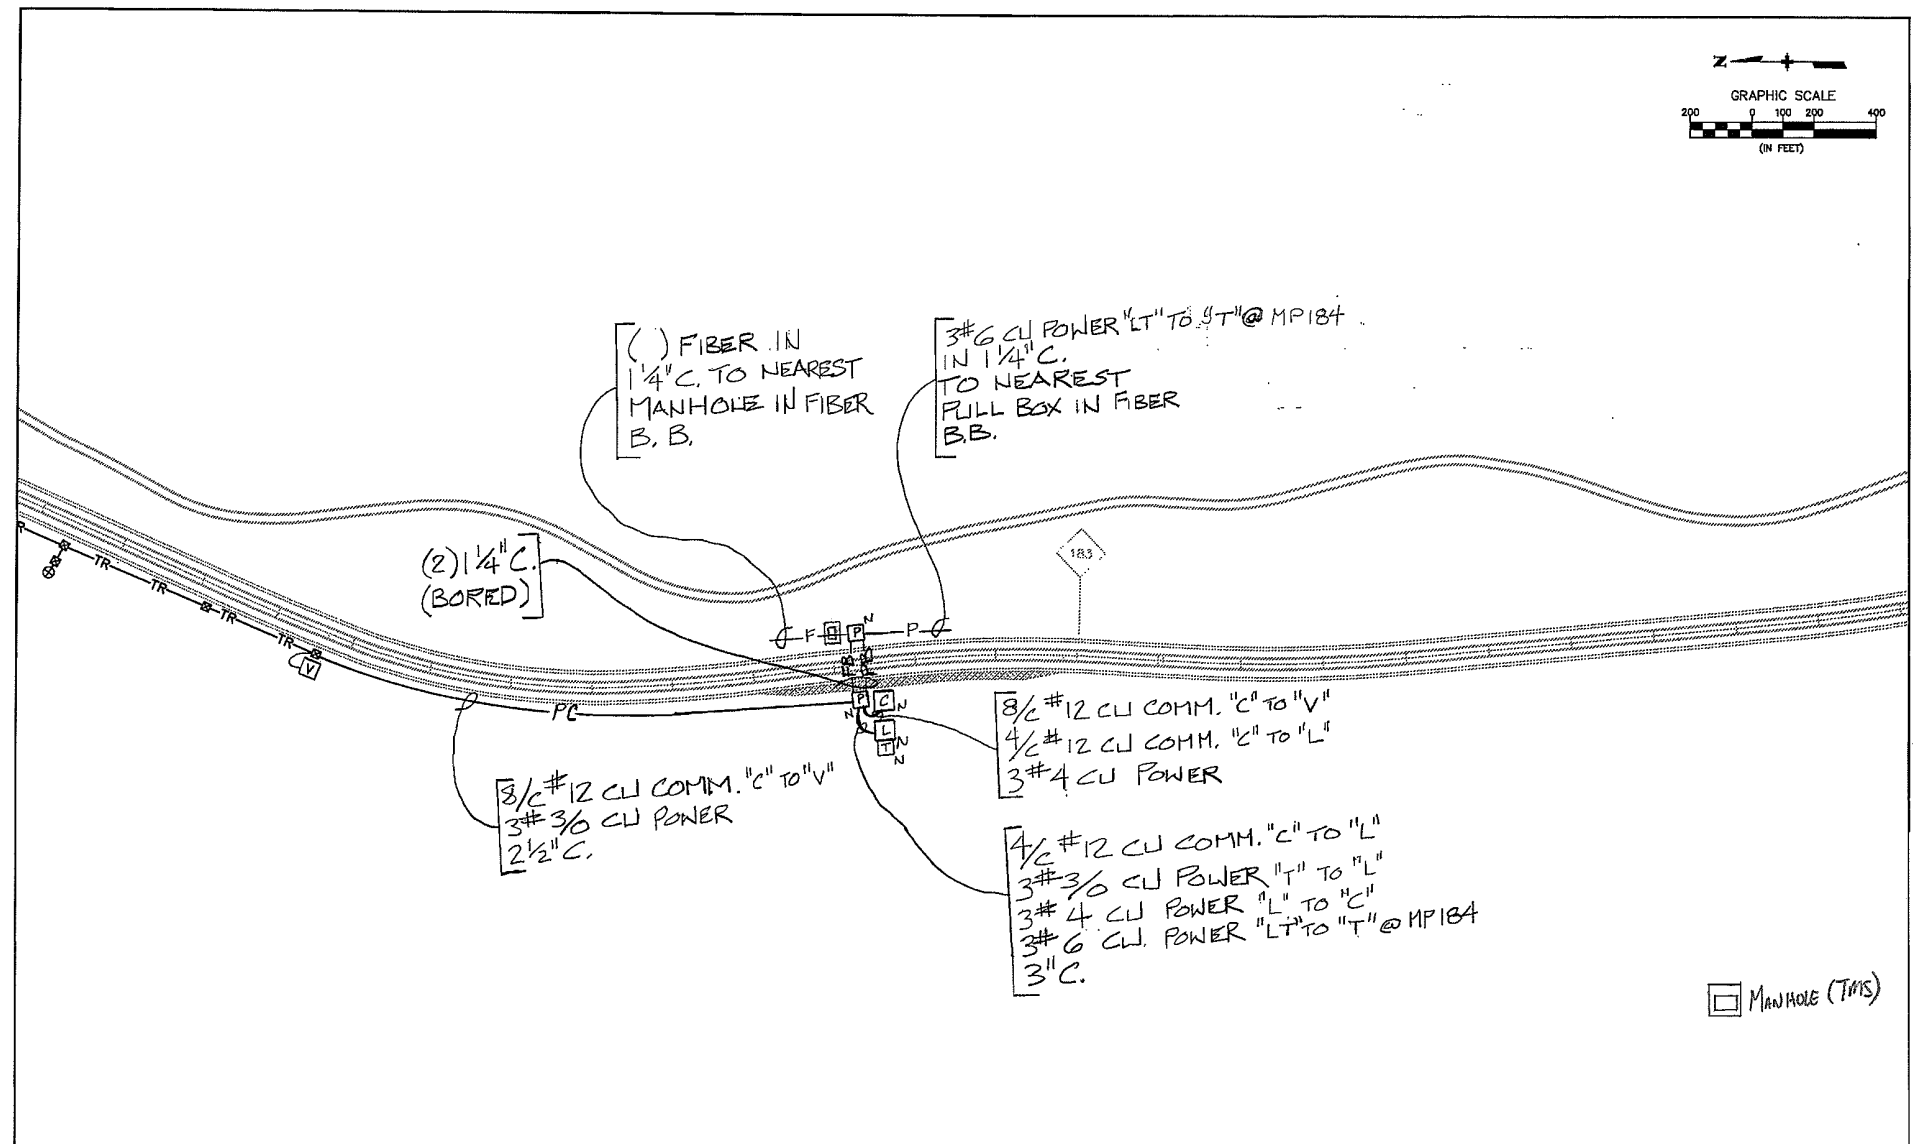 Z
GRAPHIC SCALE
200 0 100 200 400
(IN FEET)
( ) FIBER IN
1 1/4" C. TO NEAREST
MANHOLE IN FIBER
B. B.
3#6 CU POWER "LT" TO "T" @ MP184
IN 1 1/4" C.
TO NEAREST
PULL BOX IN FIBER
B.B.
(2) 1 1/4" C.
(BORED)
183
R
TR
TR
TR
TR
V
F
P
N
P
PC
P
C
N
N
L
N
T
N
8/C #12 CU COMM. "C" TO "V"
4/C #12 CU COMM. "C" TO "L"
3#4 CU POWER
8/C #12 CU COMM. "C" TO "V"
3# 3/0 CU POWER
2 1/2" C.
4/C #12 CU COMM. "C" TO "L"
3# 3/0 CU POWER "T" TO "L"
3# 4 CU POWER "L" TO "C"
3# 6 CU. POWER "LT" TO "T" @ MP184
3" C.
MANHOLE (TMS)